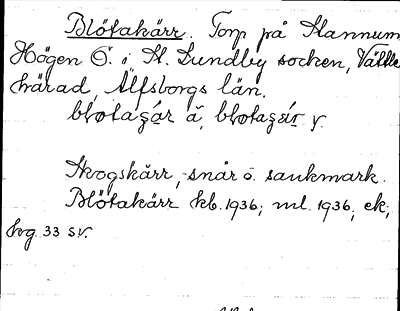 Blötakärr. Torp på Hannum
Högen Ö. i St. Lundby socken, Vättle
härad, Älfsborgs län.
blotaçár ã, blotaçár y.
Skogskärr, -snår o. sankmark.
Blötakärr kb. 1936; ml. 1936; ek;
bg. 33 SV.